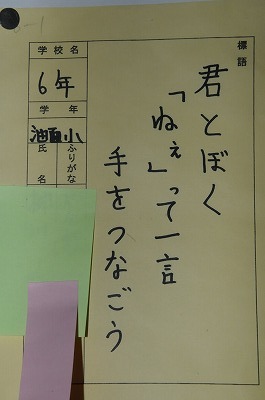 標語
君とぼく
「ねぇ」って一言
手をつなごう
学校名
6年
学年
油面小
ふりがな
氏名